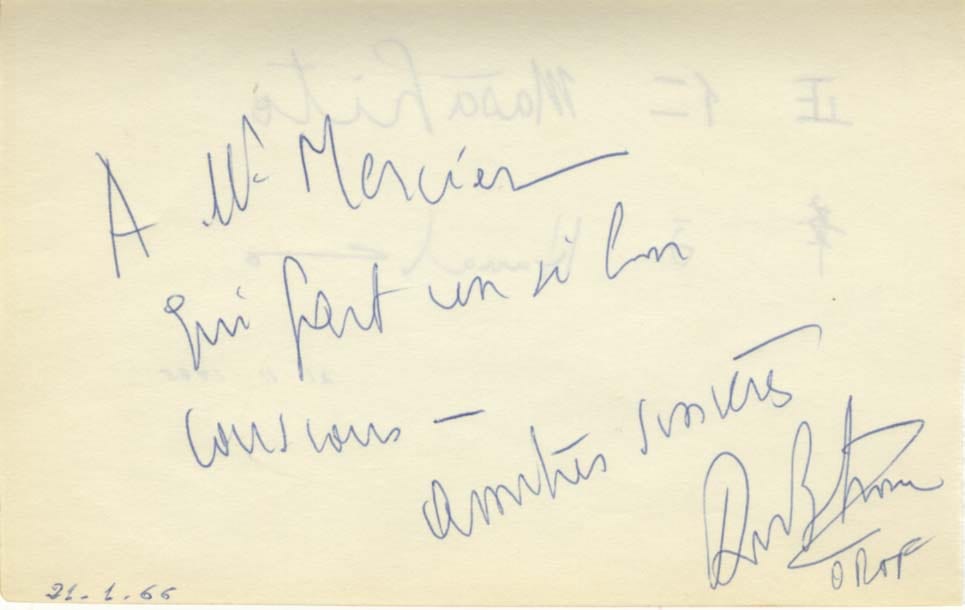 A Mr Mercier
qui fait un si bon
couscous —
amitiés sincères
ORTF
21.1.66